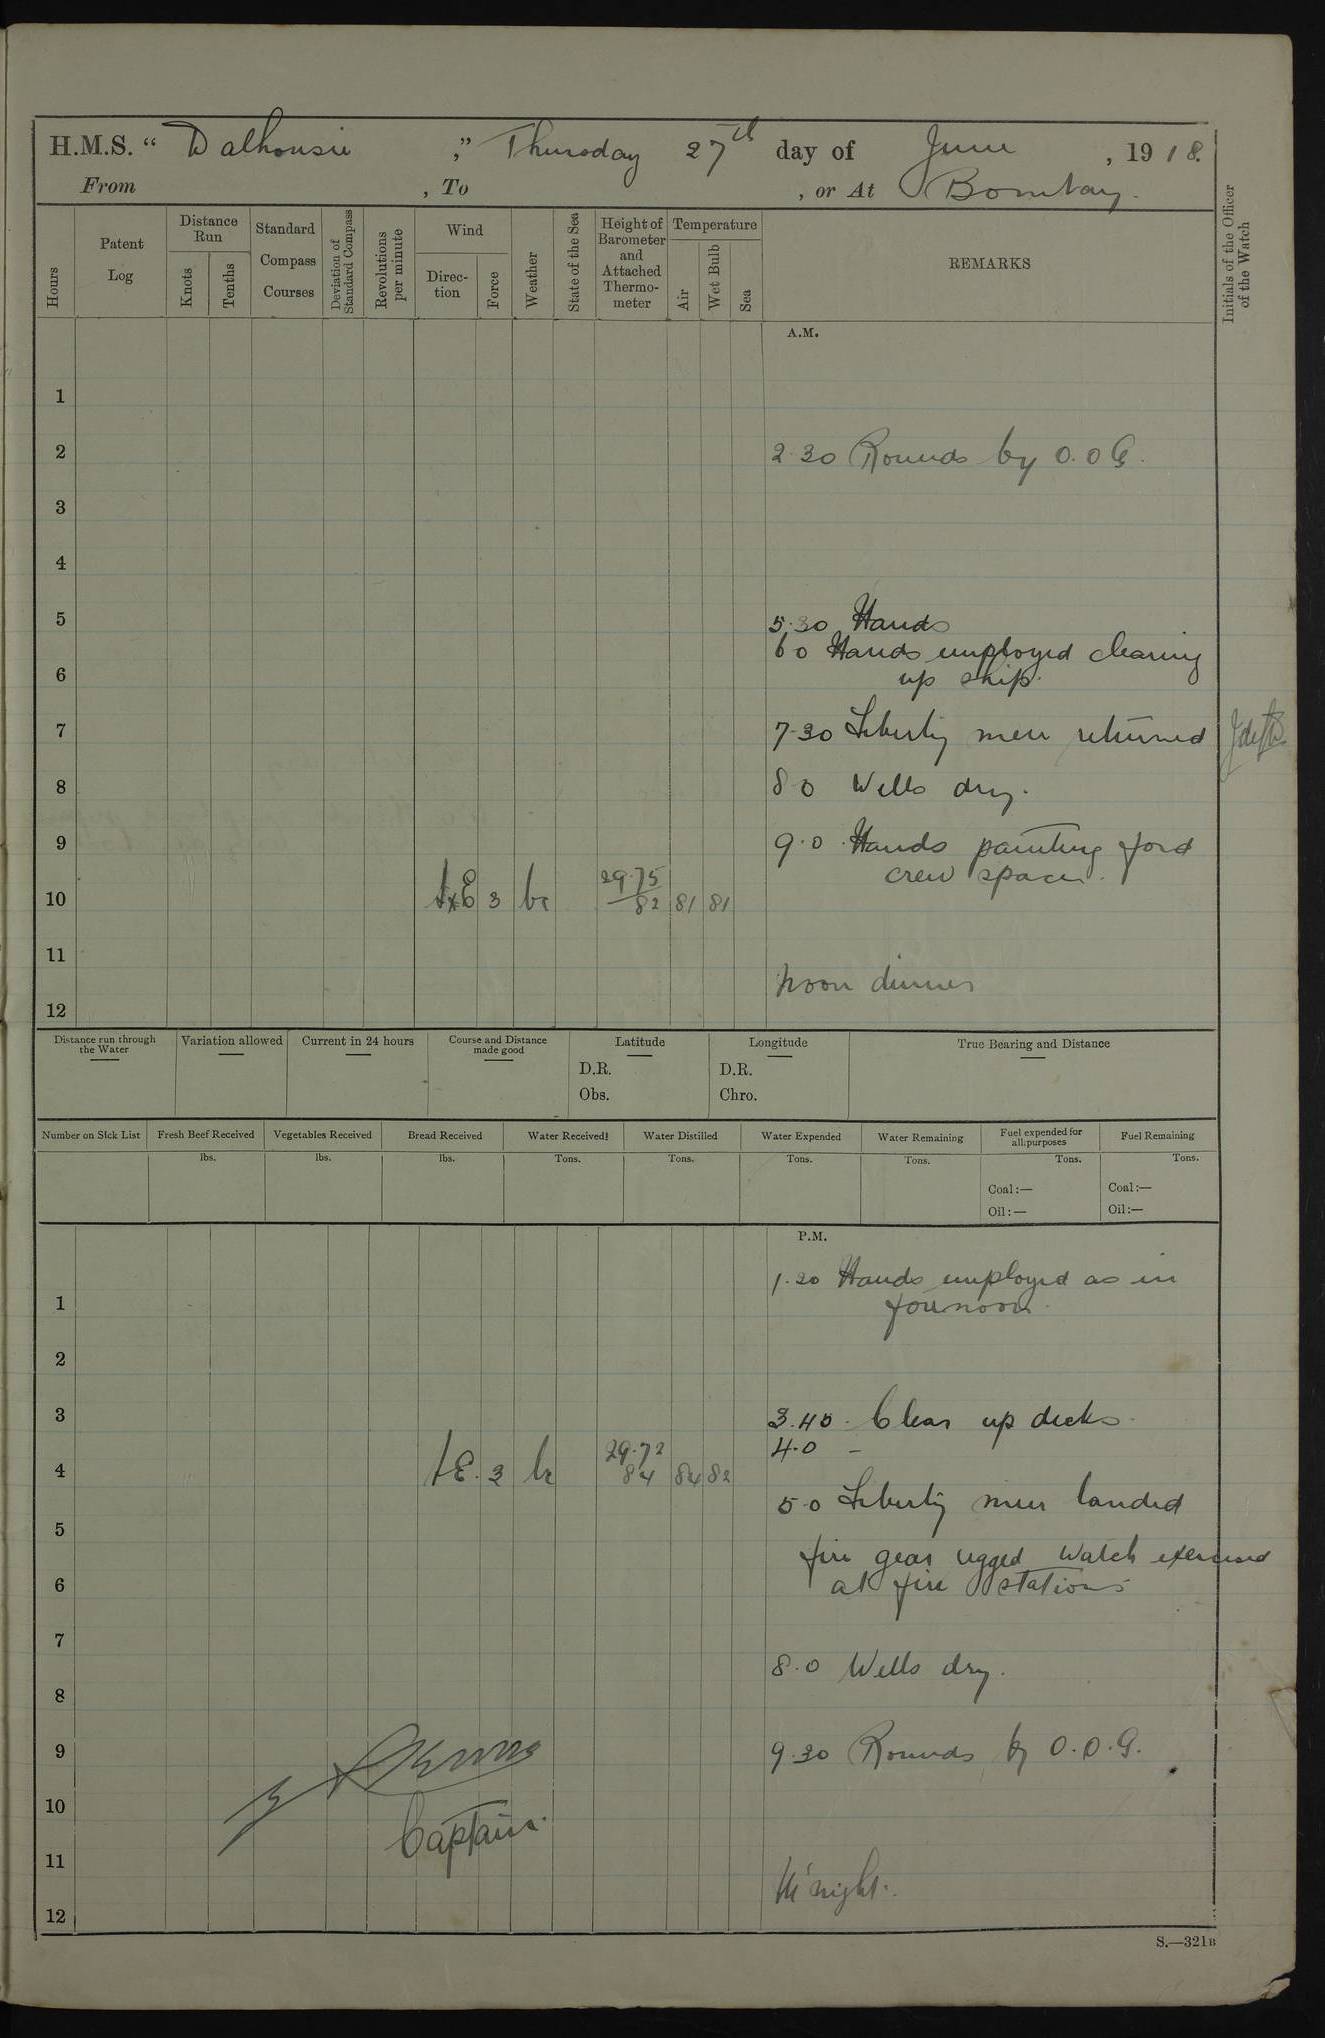 H.M.S. “ Dalhousie ,” Thursday 27th day of June , 1918.
From , To , or At Bombay.
Hours
Patent Log
Distance Run
Knots
Tenths
Standard Compass Courses
Deviation of Standard Compass
Revolutions per minute
Wind
Direction
Force
Weather
State of the Sea
Height of Barometer and Attached Thermometer
Temperature
Air
Wet Bulb
Sea
REMARKS
Initials of the Officer of the Watch
A.M.
1
2
2.30 Rounds by O.O.G.
3
4
5
5.30 Hands
6.0 Hands employed cleaning
6
up ship.
7
7.30 Liberty men returned
8
8.0 Wells dry.
9
9.0 Hands painting ford
crew spaces.
29.75
10 3 bc 82 81 81
11
Noon dinner
12
Distance run through the Water
Variation allowed
Current in 24 hours
Course and Distance made good
Latitude
D.R.
Obs.
Longitude
D.R.
Chro.
True Bearing and Distance
Number on Sick List
Fresh Beef Received
lbs.
Vegetables Received
lbs.
Bread Received
lbs.
Water Received
Tons.
Water Distilled
Tons.
Water Expended
Tons.
Water Remaining
Tons.
Fuel expended for all purposes
Tons.
Coal:—
Oil:—
Fuel Remaining
Tons.
Coal:—
Oil:—
P.M.
1.20 Hands employed as in
1
forenoon.
2
3
3.45. Clear up decks.
4.0 –
29.72
4 3 bc 84 84 82
5.0 Liberty men landed
5
fire gear rigged Watch exercised
6
at fire stations
7
8.0 Wells dry.
8
9
9.30 Rounds by O.O.G.
10
Captain.
11
M'night.
12
S.—321B